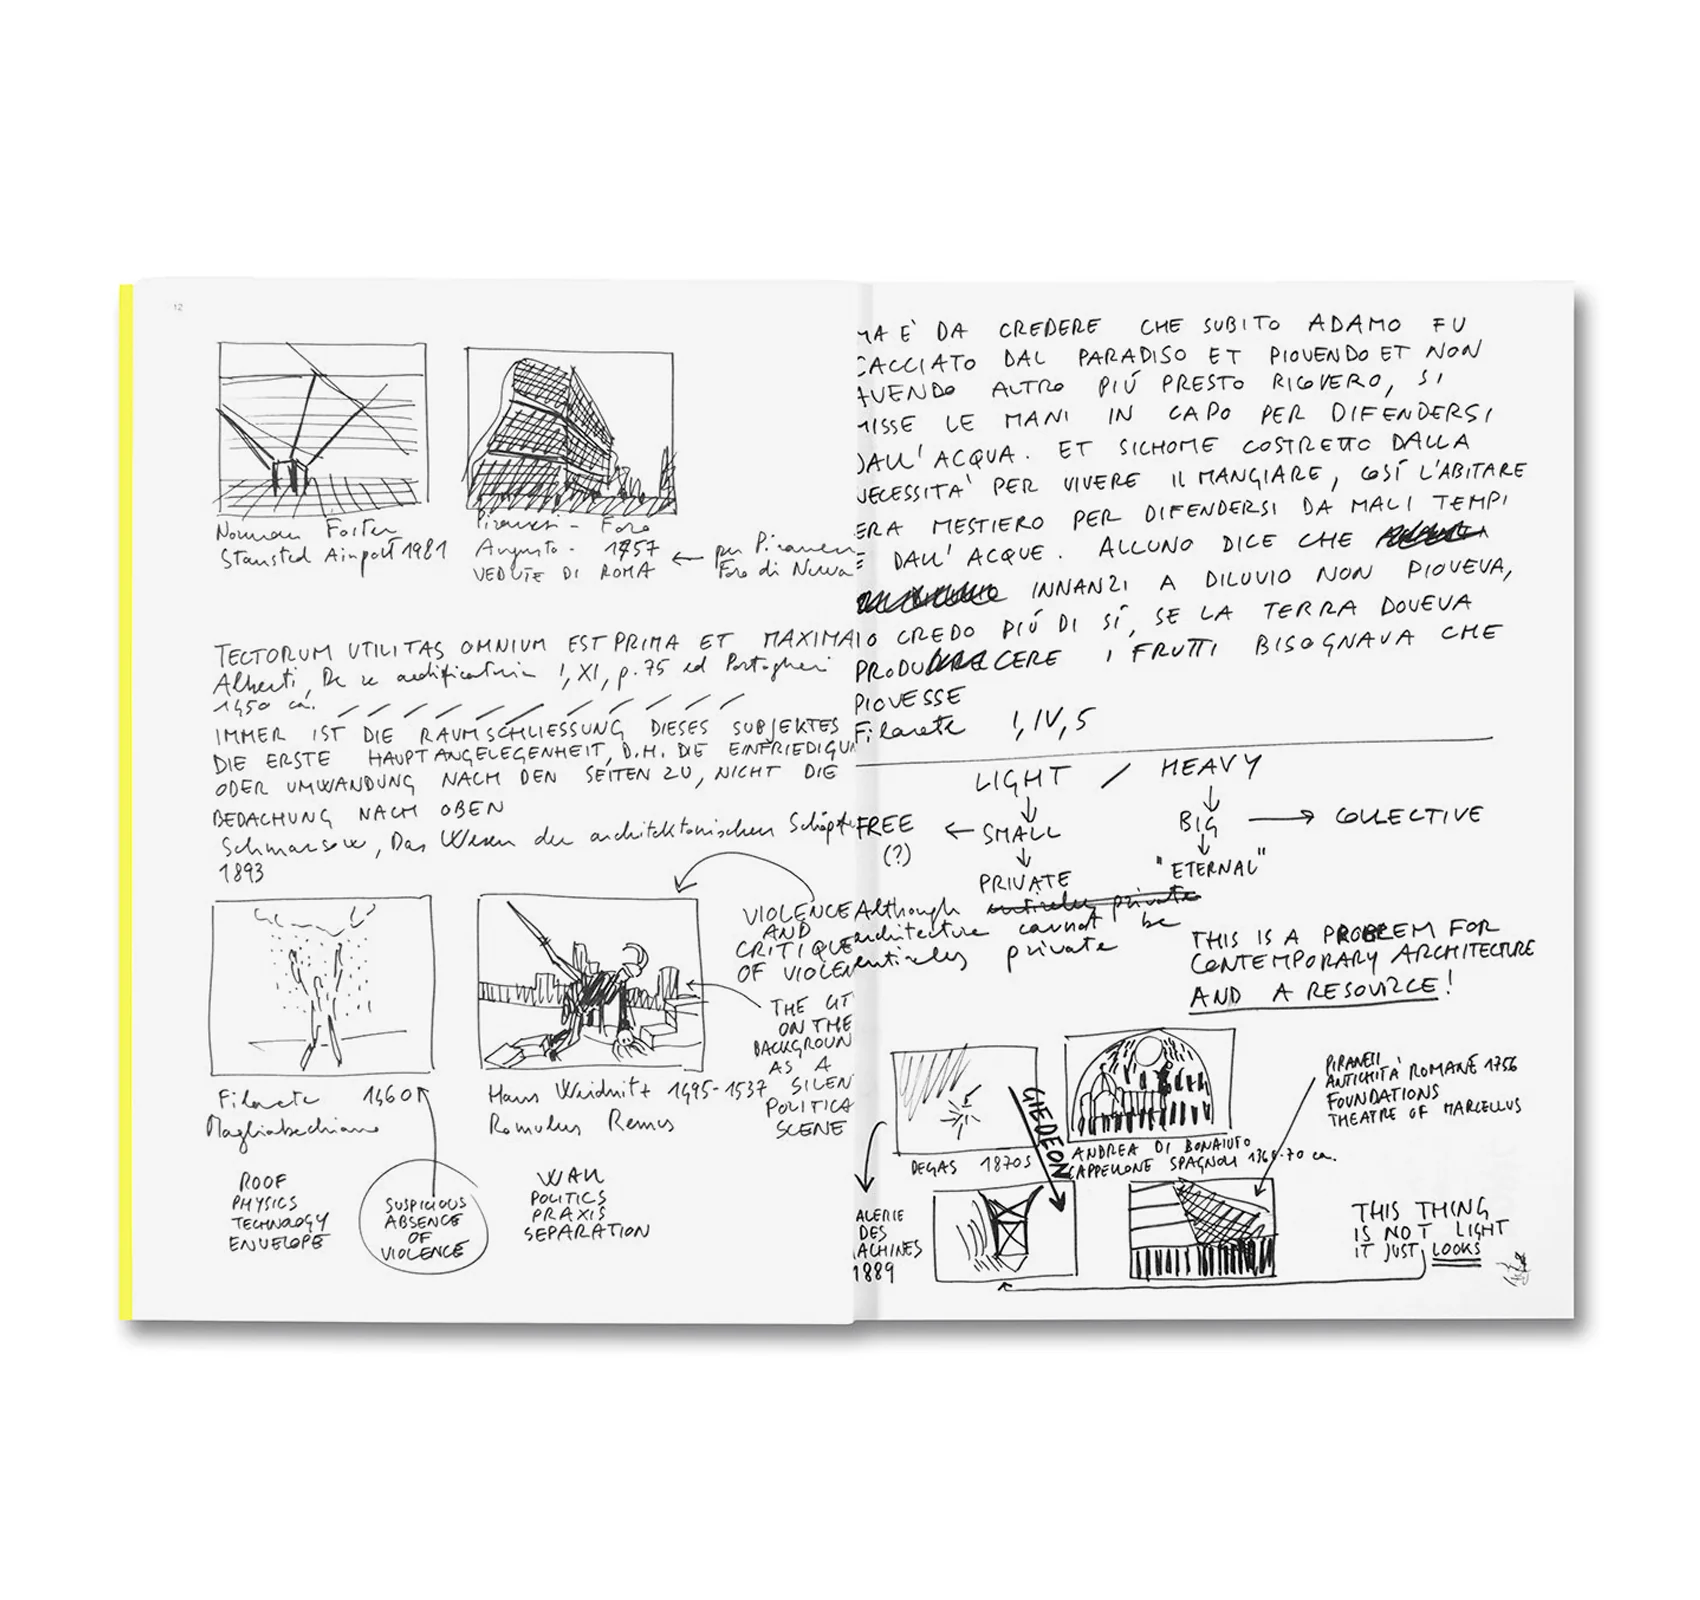 12
Norman Foster
Stansted Airport 1981
Piranesi - Foro
Augusto - 1757
VEDUTE DI ROMA
← per Piranesi
Foro di Nerva
TECTORUM UTILITAS OMNIUM EST PRIMA ET MAXIMA
Alberti, De re aedificatoria I, XI, p. 75 ed Portoghesi
1450 ca.
IMMER IST DIE RAUMSCHLIESSUNG DIESES SUBJEKTES
DIE ERSTE HAUPTANGELEGENHEIT, D.H. DIE EINFRIEDIGUN
ODER UMWANDUNG NACH DEN SEITEN ZU, NICHT DIE
BEDACHUNG NACH OBEN
Schmarsow, Das Wesen der architektonischen Schöpfu
1893
VIOLENCE
AND
CRITIQUE
OF VIOLEN
THE CIT
ON THE
BACKGROUN
AS A
SILEN
POLITICA
SCENE
Filarete 1460
Magliabechiano
Hans Weiditz 1495-1537
Romulus Remus
ROOF
PHYSICS
TECHNOLOGY
ENVELOPE
SUSPICIOUS
ABSENCE
OF
VIOLENCE
WALL
POLITICS
PRAXIS
SEPARATION
MA E' DA CREDERE CHE SUBITO ADAMO FU
CACCIATO DAL PARADISO ET PIOVENDO ET NON
AVENDO ALTRO PIÚ PRESTO RICOVERO, SI
MISSE LE MANI IN CAPO PER DIFENDERSI
DALL'ACQUA. ET SICHOME COSTRETTO DALLA
NECESSITA' PER VIVERE IL MANGIARE, COSÍ L'ABITARE
ERA MESTIERO PER DIFENDERSI DA MALI TEMPI
E DALL'ACQUE. ALCUNO DICE CHE
INNANZI A DILUVIO NON PIOVEVA,
IO CREDO PIÚ DI SÍ, SE LA TERRA DOVEVA
PRODUCERE I FRUTTI BISOGNAVA CHE
PIOVESSE
Filarete I, IV, 5
LIGHT / HEAVY
FREE ← SMALL
(?)
BIG → COLLECTIVE
PRIVATE
"ETERNAL"
Although entirely private
architecture cannot be
entirely private
THIS IS A PROBLEM FOR
CONTEMPORARY ARCHITECTURE
AND A RESOURCE!
GIEDEON
DEGAS 1870s
ANDREA DI BONAIUTO
CAPPELLONE SPAGNOLI 1365-70 ca.
PIRANESI
ANTICHITÀ ROMANE 1756
FOUNDATIONS
THEATRE OF MARCELLUS
ALERIE
DES
MACHINES
1889
THIS THING
IS NOT LIGHT
IT JUST LOOKS